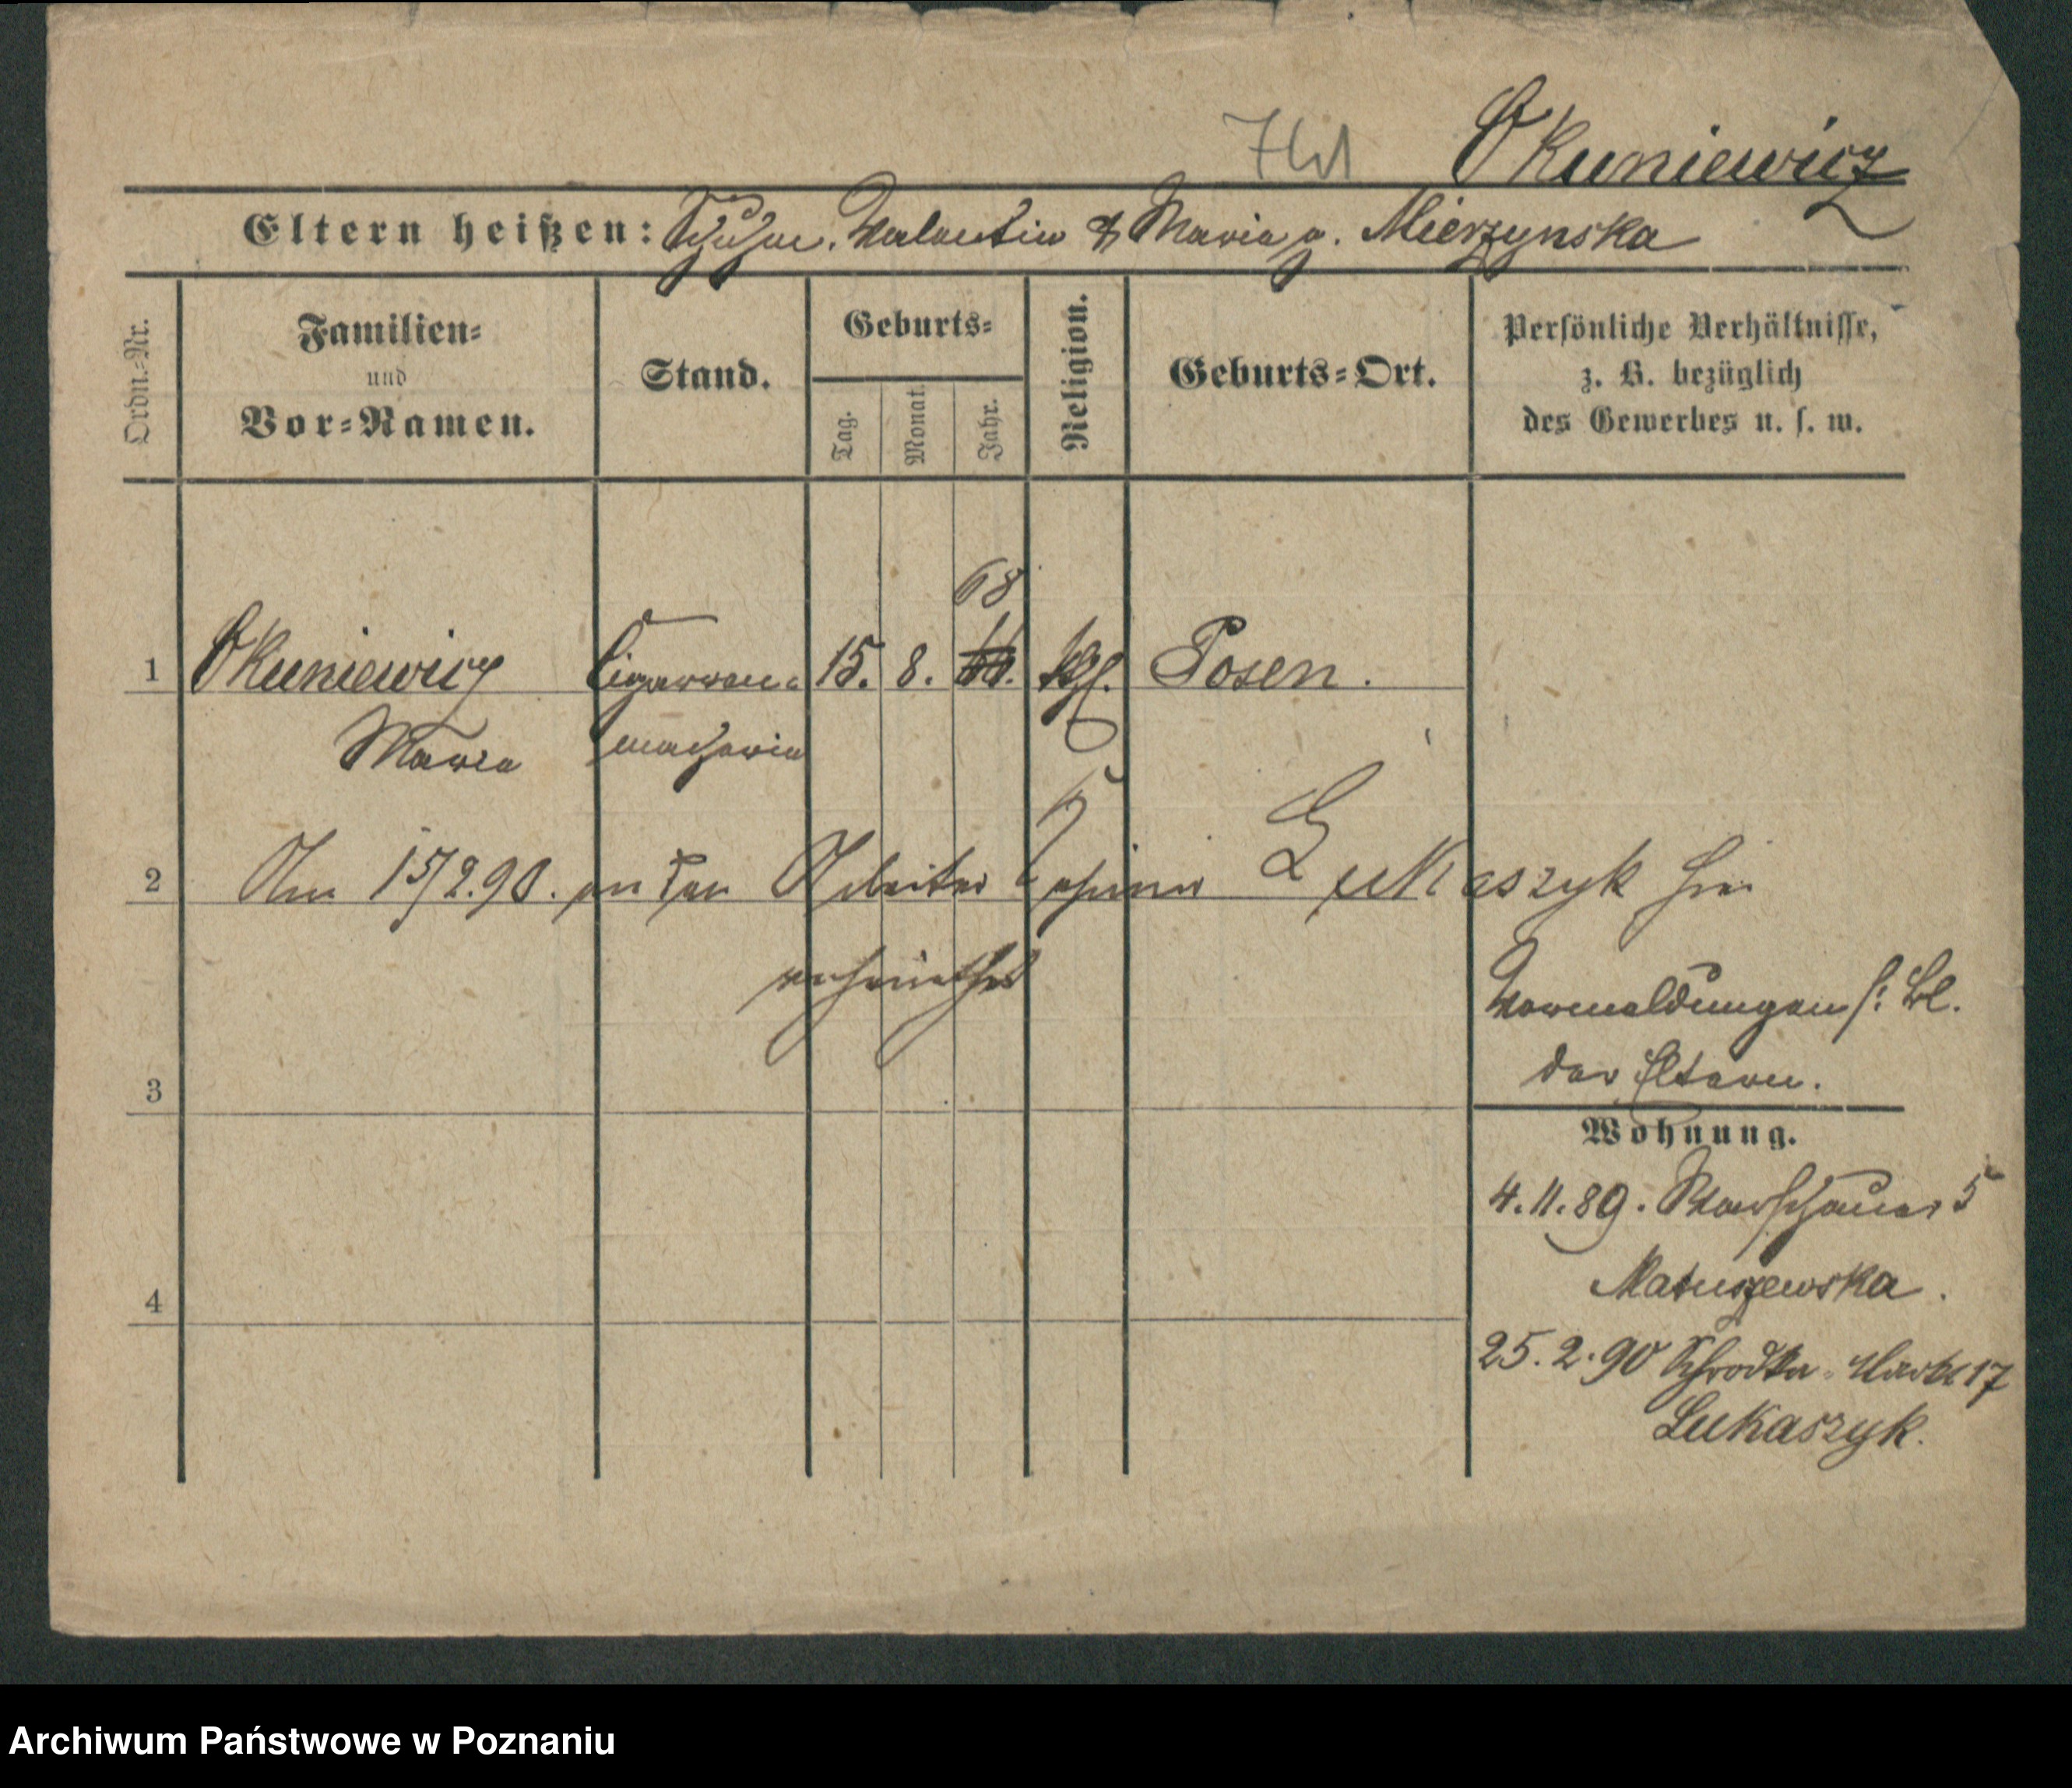 Okuniewicz
Eltern heißen: Valentin & Maria g. Mierzynska
Ordn.-Nr.
Familien-
und
Vor-Namen.
Stand.
Geburts-
Tag.
Monat.
Jahr.
Religion.
Geburts-Ort.
Persönliche Verhältnisse,
z. B. bezüglich
des Gewerbes u. s. w.
68
1 Okuniewicz Cigarren- 15. 8. kgl. Posen.
Maria macherin
2 Am 15/2.90. an den Arbeiter Lukaszyk hier
verheirathet
Vormeldungen s: Bl.
der Eltern.
3
Wohnung.
4.11.89. Warschauer 5
Matuszewska.
4
25.2.90 Schrodka-Markt 17
Lukaszyk.
Archiwum Państwowe w Poznaniu